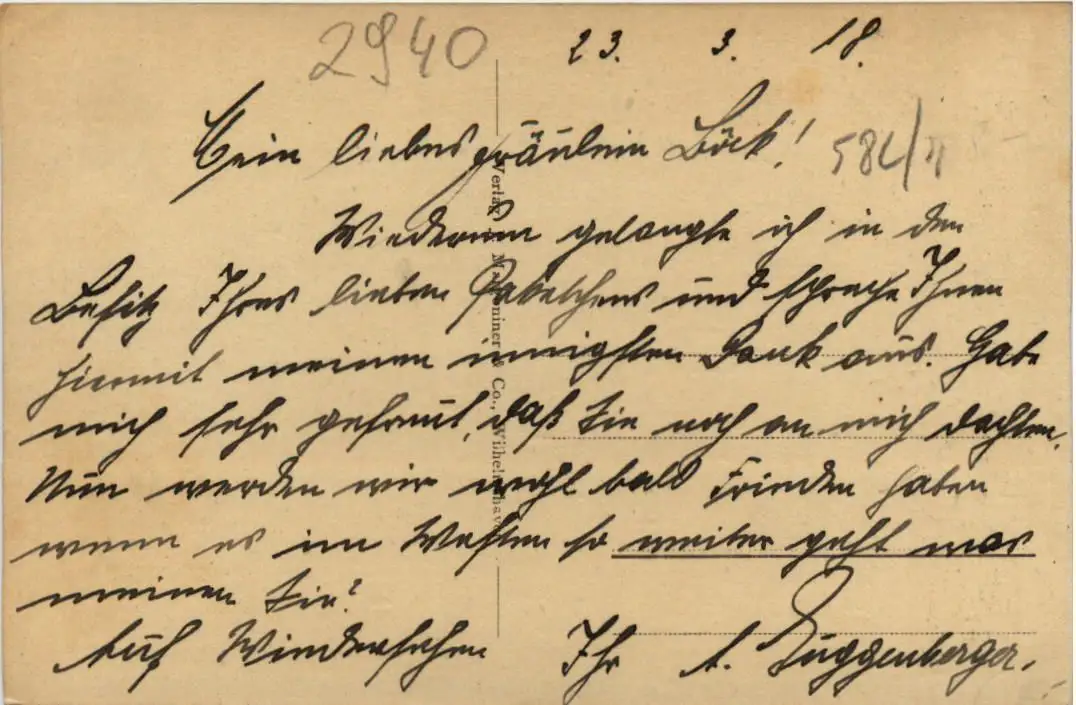 2940
23. 3. 18.
Mein liebes Fräulein Böck!
584/II
Wiederum gelangte ich in den
Besitz Ihres lieben Paketchens und spreche Ihnen
hiermit meinen innigsten Dank aus. Habe
mich sehr gefreut, daß Sie noch an mich dachten.
Nun werden wir wohl bald Frieden haben
wenn es im Westen so weiter geht was
meinen Sie?
Auf Wiedersehen Ihr A. Guggenberger.
Verlag Co., Wilhelmshaven